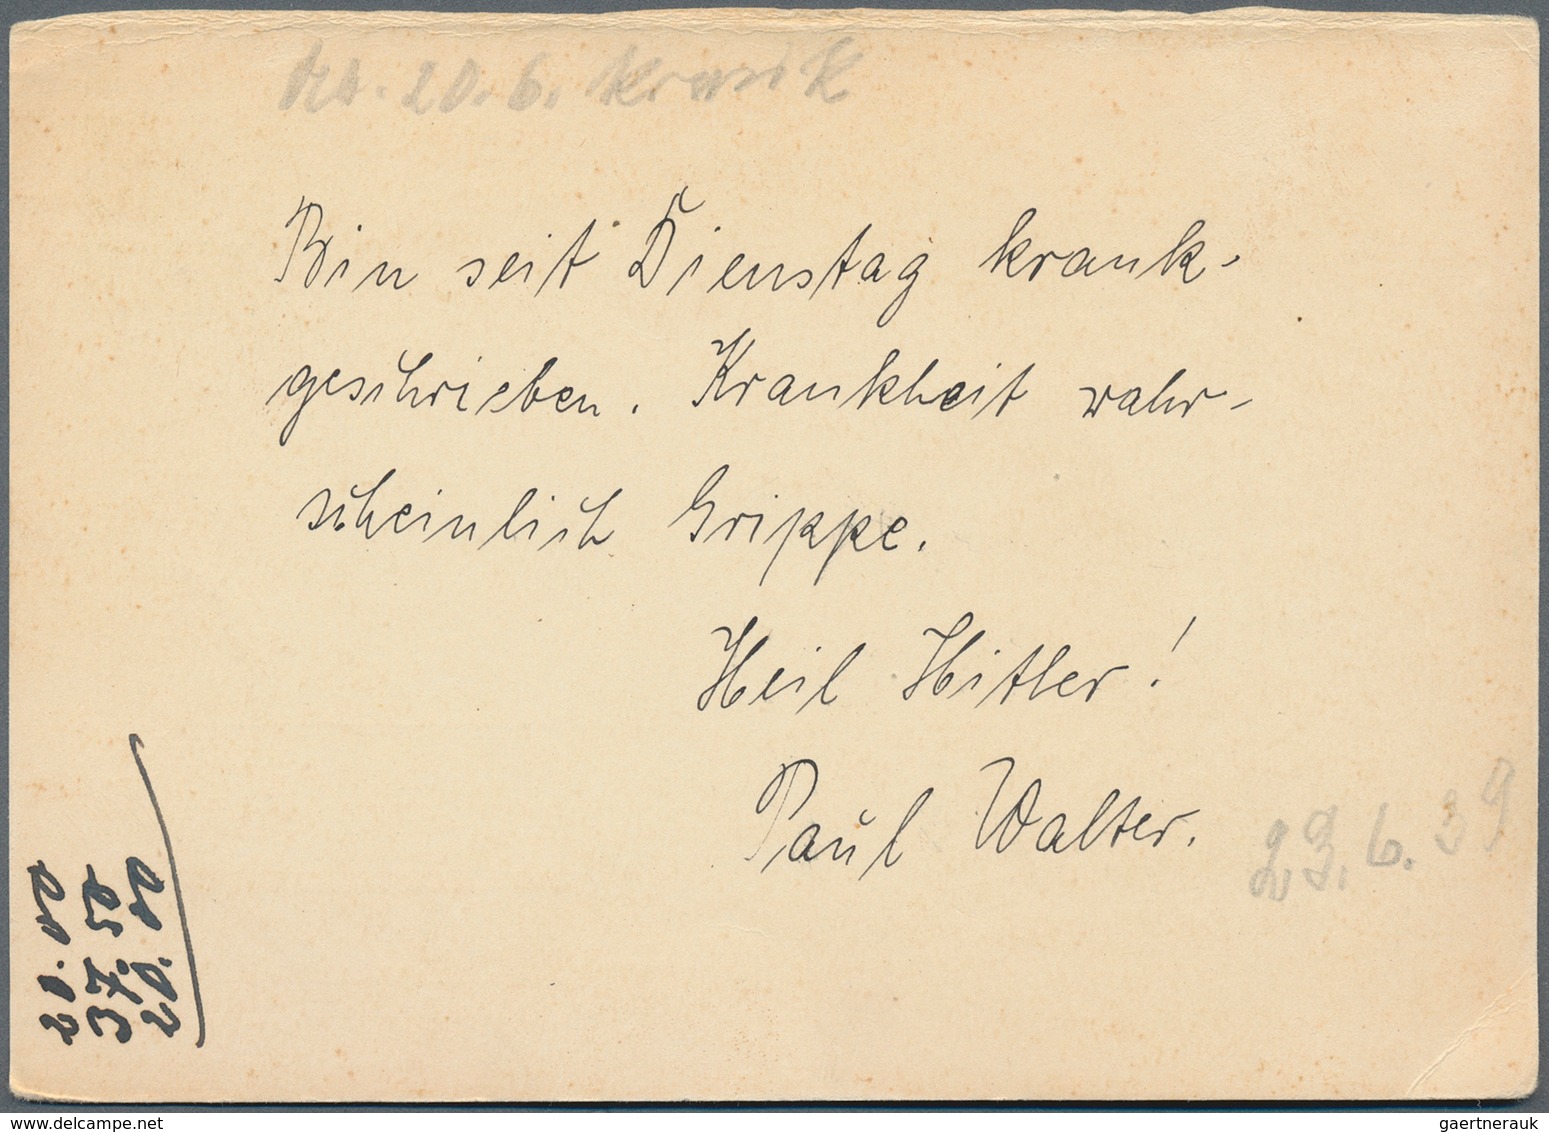 20.6. krank
Bin seit Dienstag krank-
geschrieben. Krankheit wahr-
scheinlich Grippe.
Heil Hitler!
Paul Walter.
23.6.39
20.00
37.50
20.00
delcampe.net
gaertnerauk